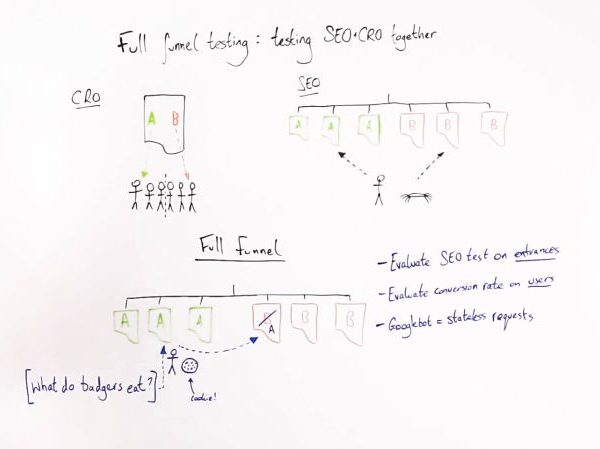 Full funnel testing : testing SEO+CRO together
CRO
A B
SEO
A A A B B B
Full Funnel
A A A B A B B
[What do badgers eat?]
cookie!
- Evaluate SEO test on entrances
- Evaluate conversion rate on users
- Googlebot = stateless requests